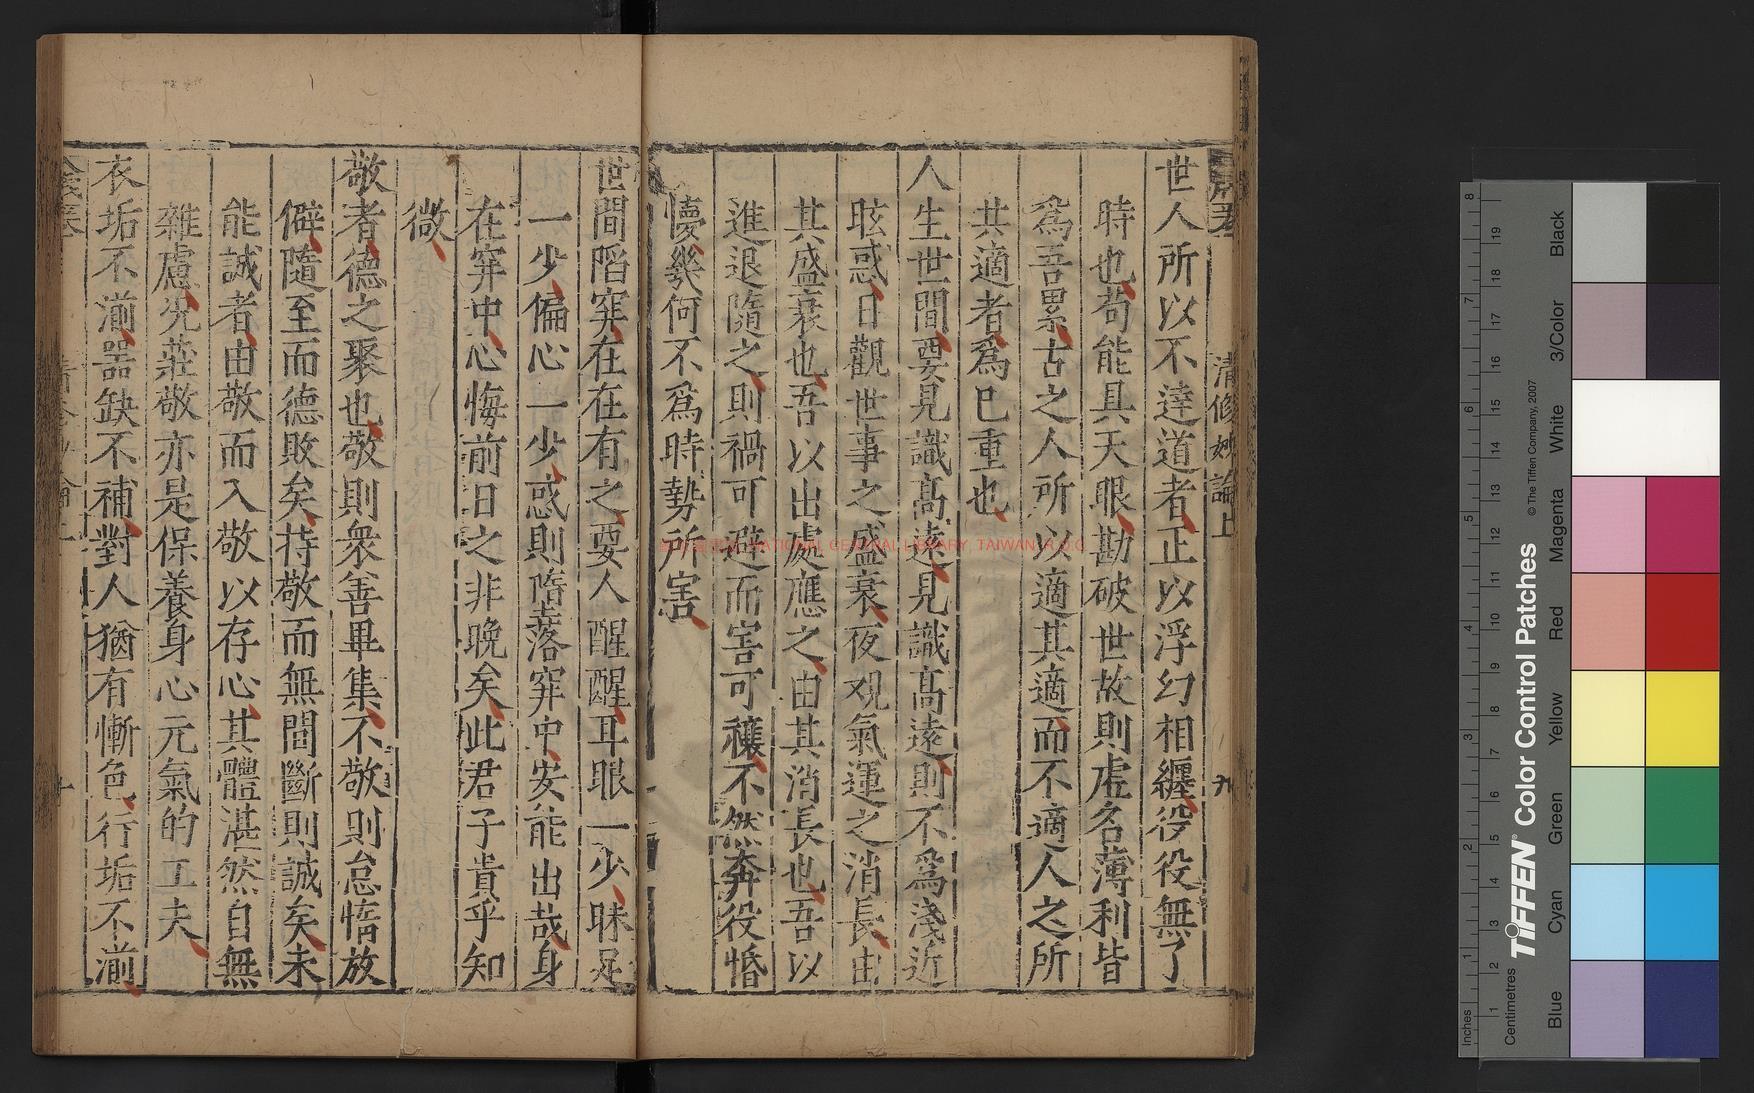 清修妙論上
九
世人所以不達道者正以浮幻相纏役役無了
時也苟能具天眼勘破世故則虛名薄利皆
爲吾累古之人所以適其適而不適人之所
共適者爲己重也
人生世間要見識高遠見識高遠則不爲淺近
眩惑日觀世事之盛衰夜观氣運之消長由
其盛衰也吾以出處應之由其消長也吾以
進退隨之則禍可避而害可禳不然奔役惛
懮幾何不爲時勢所害
世間陷穽在在有之要人醒醒耳眼一少昧足
一少偏心一少惑則墮落穽中安能出哉身
在穽中心悔前日之非晚矣此君子貴乎知
微
敬者德之聚也敬則衆善畢集不敬則怠惰放
僻隨至而德敗矣持敬而無間斷則誠矣未
能誠者由敬而入敬以存心其體湛然自無
雜慮先莊敬亦是保養身心元氣的工夫
衣垢不湔器缺不補對人猶有慚色行垢不湔
NATIONAL CENTRAL LIBRARY, TAIWAN (R.O.C
Inches
1
2
3
4
5
6
7
8
Centimetres
1
2
3
4
5
6
7
8
9
10
11
12
13
14
15
16
17
18
19
TIFFEN® Color Control Patches
© The Tiffen Company, 2007
Blue
Cyan
Green
Yellow
Red
Magenta
White
3/Color
Black